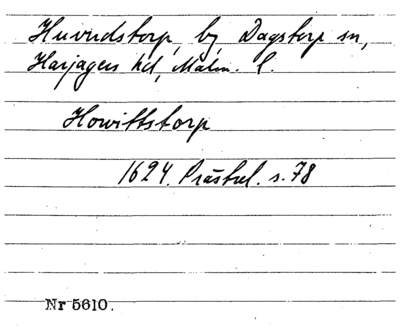 Huvudstorp, by, Dagstorp sn,
Harjagers hd, Malm. l.
Howittstorp
1624. Prästrel. s. 78
Nr 5610.